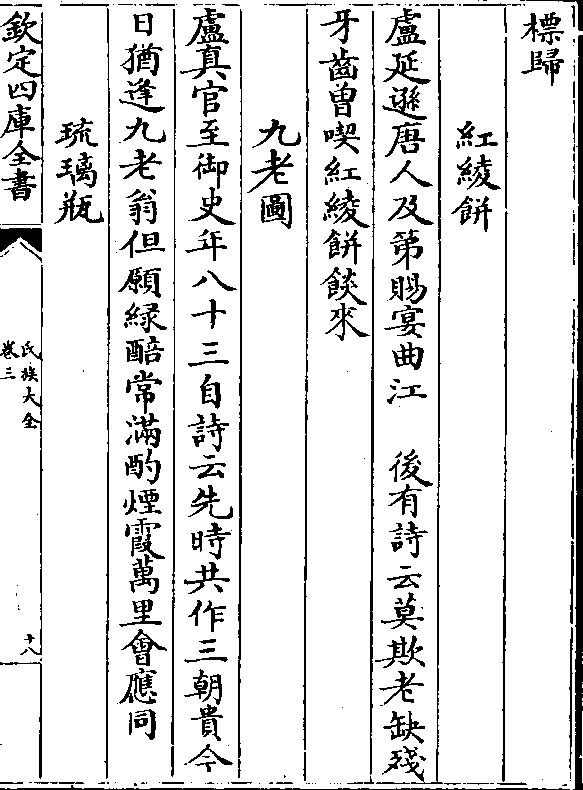 標歸
紅綾餅
盧延遜唐人及第賜宴曲江　後有詩云莫欺老缺殘
牙齒曾喫紅綾餅餤來
九老圖
盧真官至御史年八十三自詩云先時共作三朝貴今
日猶逢九老翁但願緑醅常滿酌煙霞萬里㑹應同
琉璃瓶
欽定四庫全書
氏族大全
卷三
十八